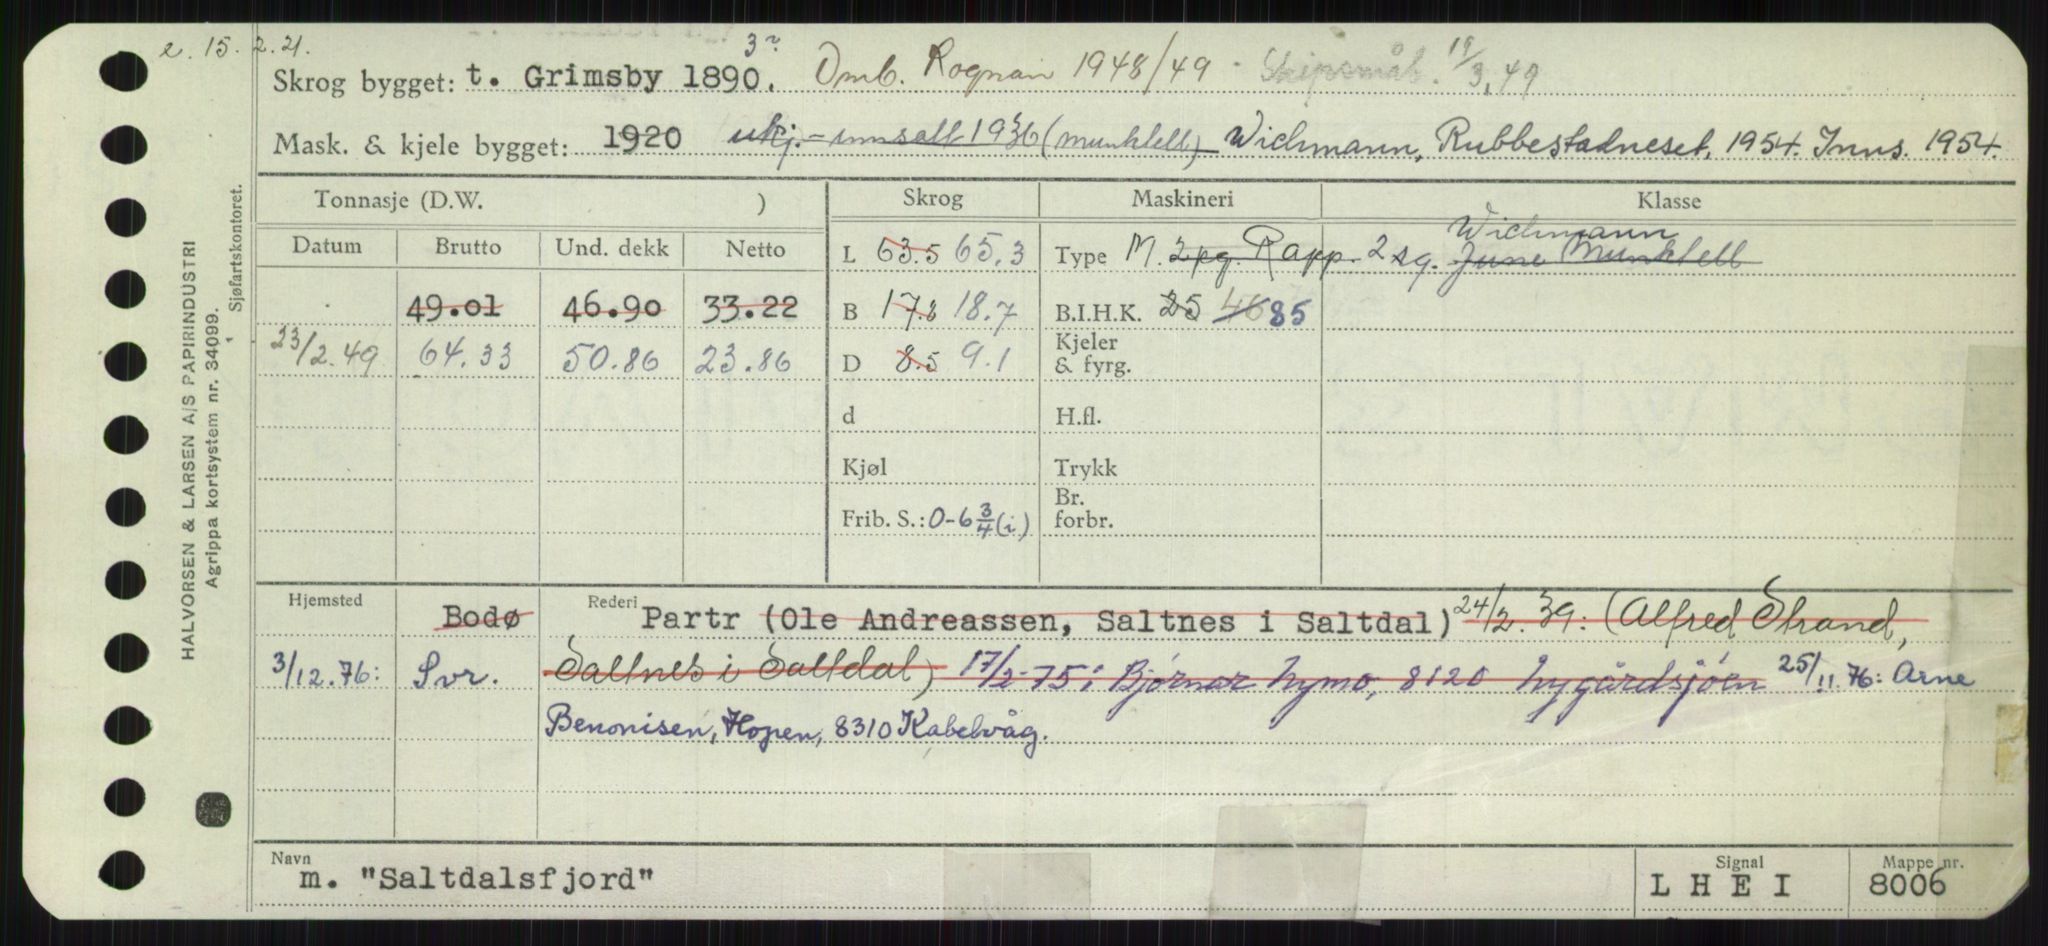 e. 15.2.21.
3
Skrog bygget: t. Grimsby 1890. Omb. Rognan 1948/49 - Skipsmål. 19/3.49
Mask. & kjele bygget: 1920 ukj. - innsatt 1936 (Munktell) Wichmann, Rubbestadneset, 1954. Inns. 1954.
Tonnasje (D.W. ) Skrog Maskineri Klasse
Datum Brutto Und. dekk Netto
L 63.5 65.3 Type M. 2pg. Rapp. 2 sg. June Munktell
Wichmann
49.01 46.90 33.22 B 17.8 18.7 B.I.H.K. 25 46 85
23/2.49 64.33 50.86 23.86 D 8.5 9.1 Kjeler & fyrg.
d H.fl.
Kjøl Trykk
Frib. S.: 0-6 3/4 (i) Br. forbr.
Hjemsted Bodø Rederi Partr (Ole Andreassen, Saltnes i Saltdal) 24/2.39: (Alfred Strand,
3/12.76: Svr. Saltnes i Saltdal) 17/2-75: Bjørnar Nymo, 8120 Nygårdsjøen 25/11.76: Arne
Benonisen, Hopen, 8310 Kabelvåg.
Navn m. "Saltdalsfjord" Signal LHEI Mappe nr. 8006
HALVORSEN & LARSEN A/S PAPIRINDUSTRI
Agrippa kortsystem nr. 34099.
Sjøfartskontoret.